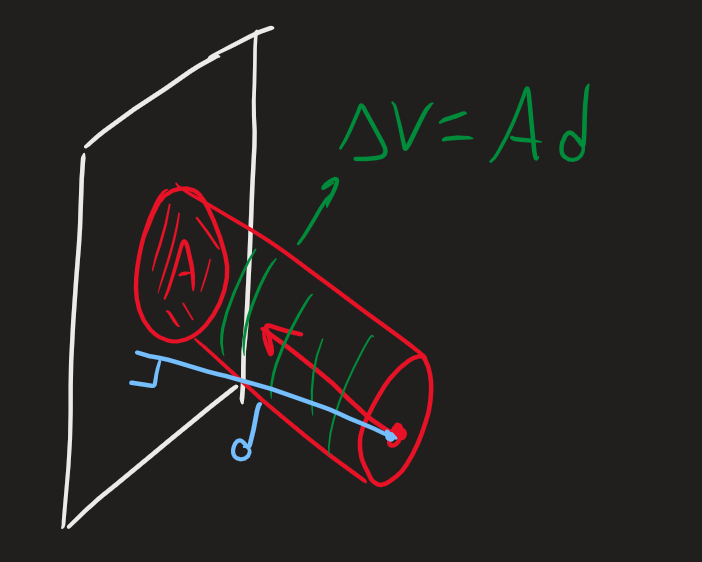 ΔV = Ad
A
d